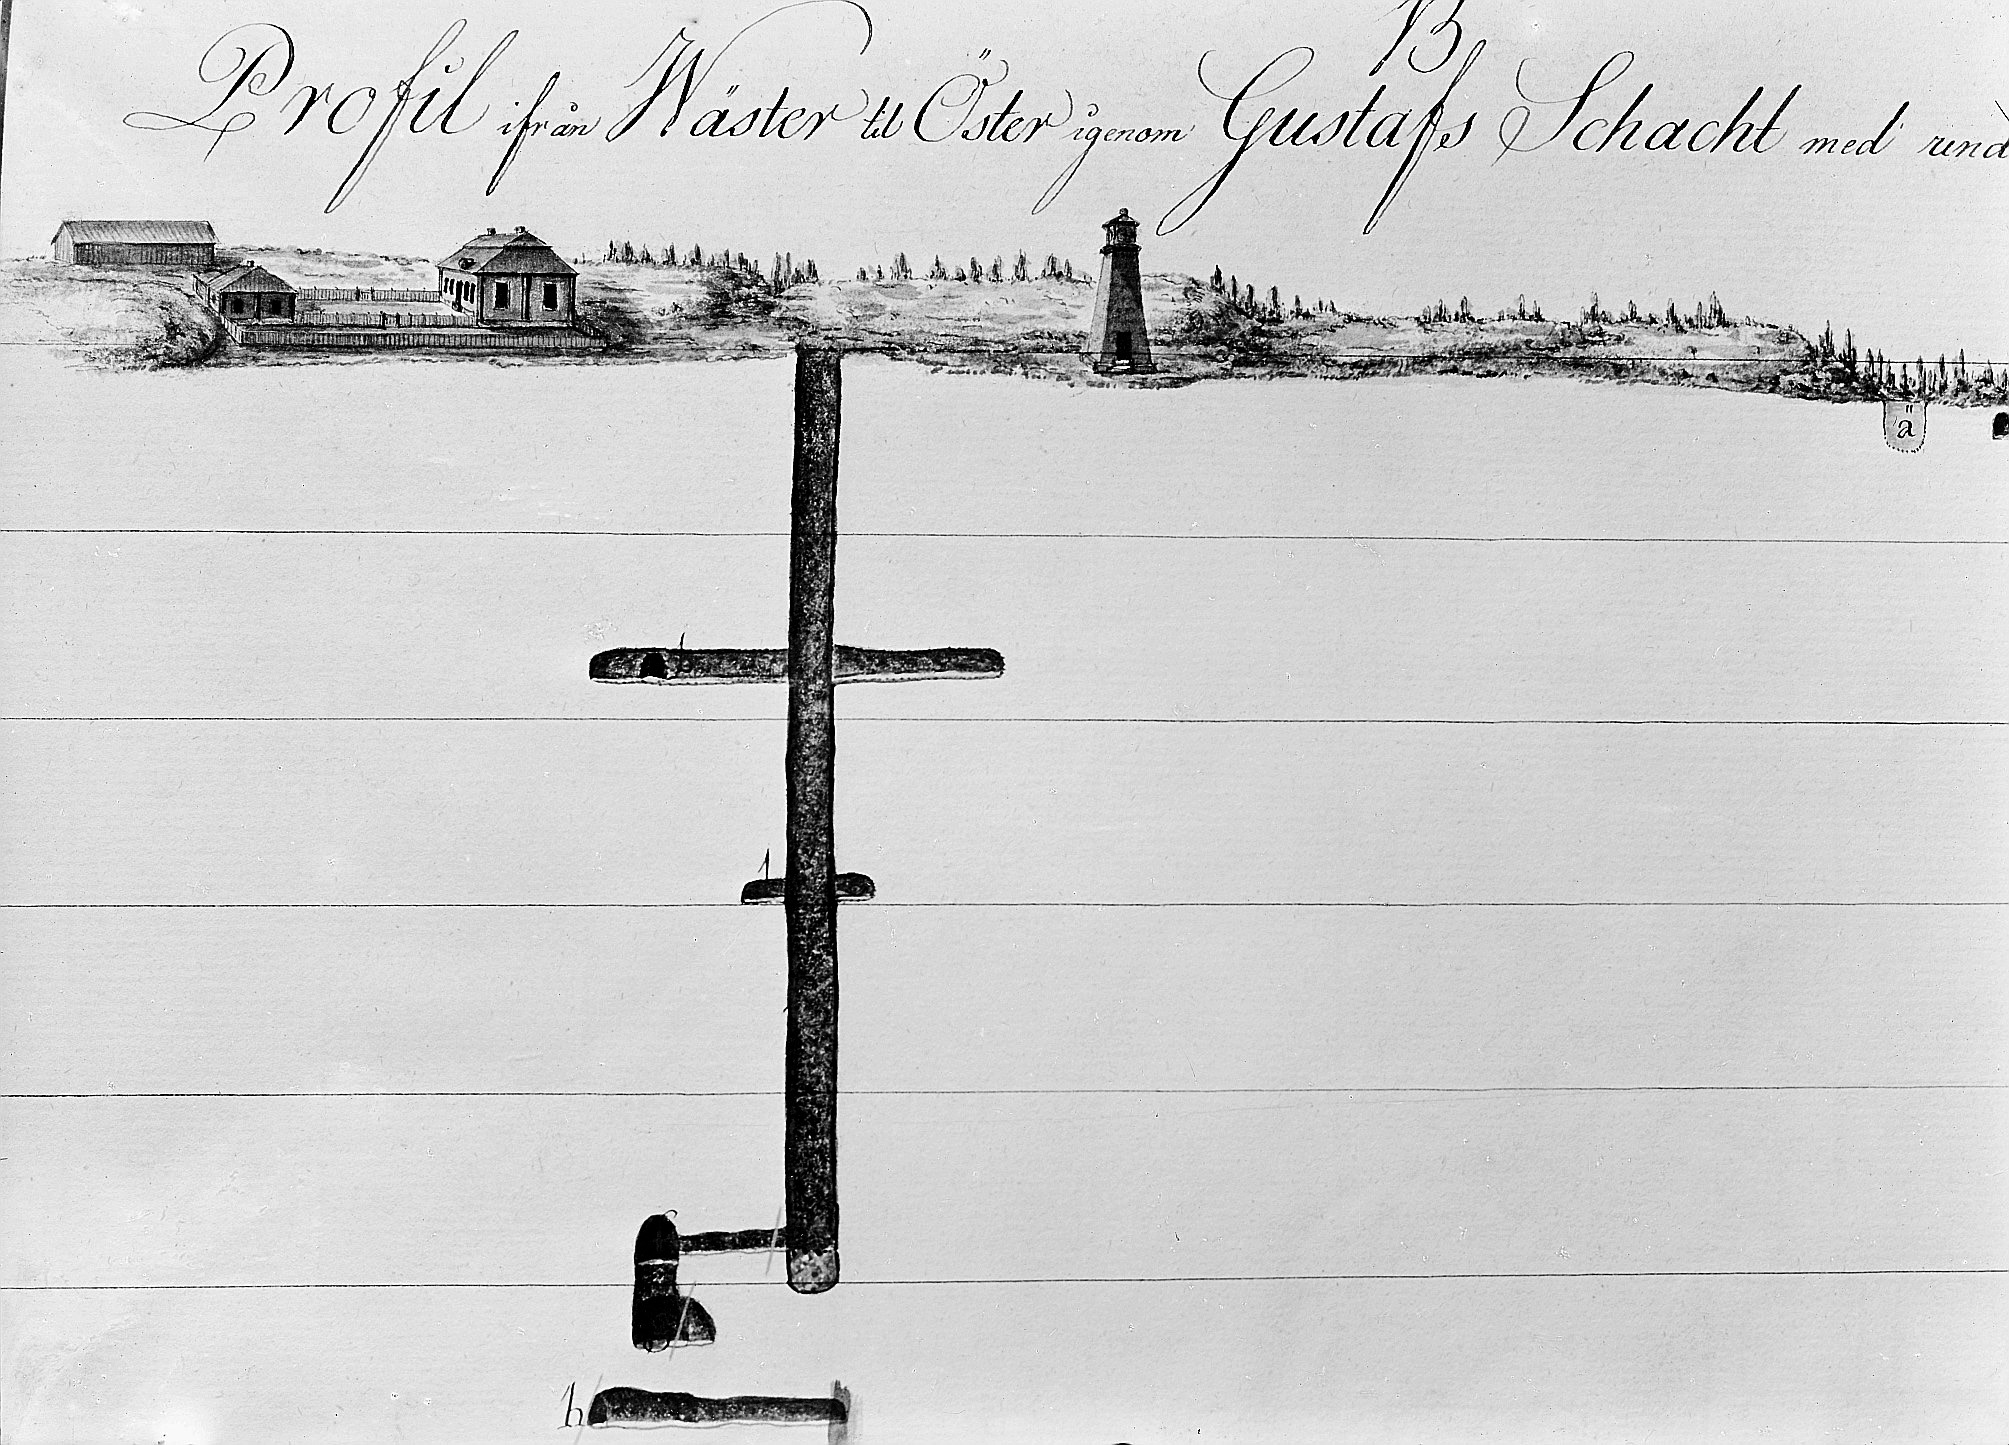 B
Profil ifrån Wäster til Öster igenom Gustafs Schacht med
ä
1
h